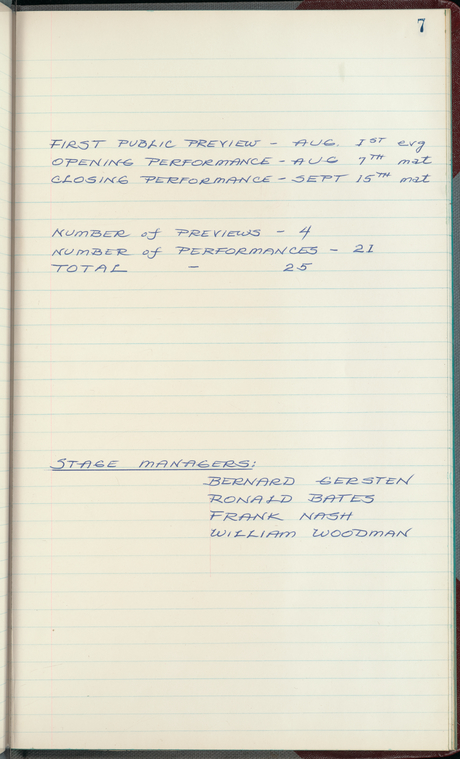 7
FIRST PUBLIC PREVIEW - AUG. 1ST evg
OPENING PERFORMANCE - AUG 7TH mat
CLOSING PERFORMANCE - SEPT 15TH mat
NUMBER of PREVIEWS - 4
NUMBER of PERFORMANCES - 21
TOTAL - 25
STAGE MANAGERS:
BERNARD GERSTEN
RONALD BATES
FRANK NASH
WILLIAM WOODMAN